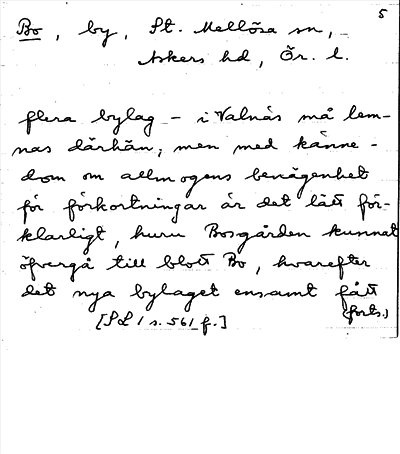 5
Bo, by, St. Mellösa sn,
Askers hd, Ör. l.
flera bylag – i Valnäs må lem-
nas därhän; men med känne-
dom om allmogens benägenhet
för förkortningar är det lätt för-
klarligt, huru Bosgården kunnat
öfvergå till blott Bo, hvarefter
det nya bylaget ensamt fått
(forts.)
[SL 1 s. 561 f.]